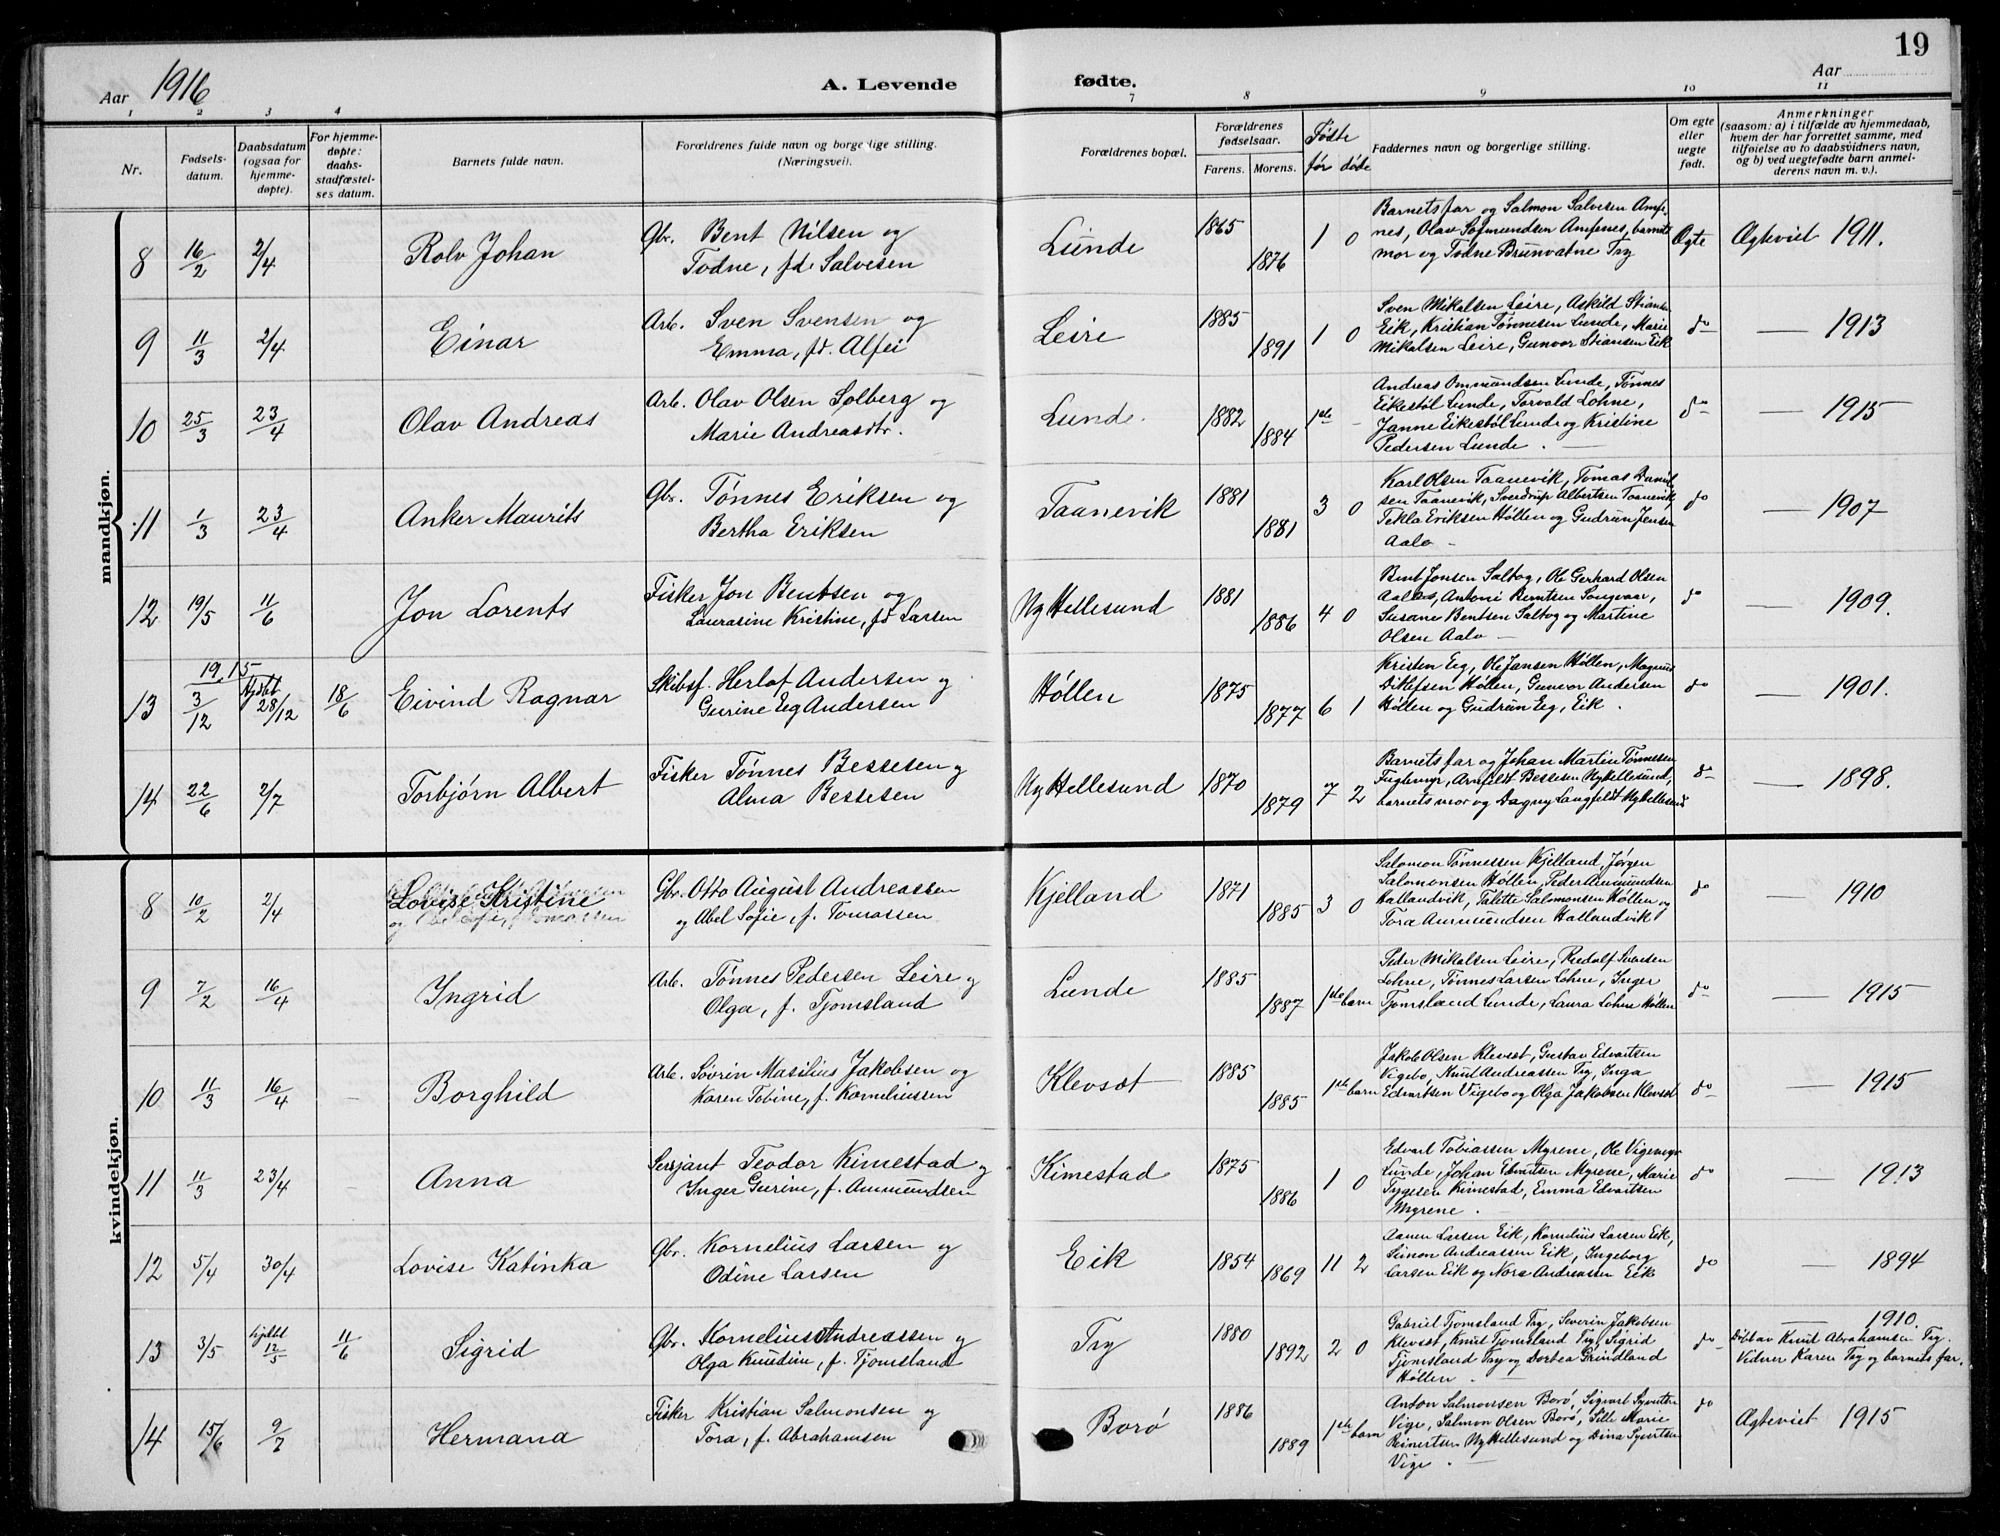 19
Aar 1916
A. Levende fødte.
Aar
1 2 3 4 7 8 9 10 11
Nr.
Fødsels-
datum.
Daabsdatum
(ogsaa for
hjemme-
døpte).
For hjemme-
døpte:
daabs-
stadfæstel-
ses datum.
Barnets fulde navn.
Forældrenes fulde navn og borgerlige stilling.
(Næringsvei).
Forældrenes bopæl.
Forældrenes
fødselsaar.
Farens. Morens.
Føste
før døde
Faddernes navn og borgerlige stilling.
Om egte
eller
uegte
født.
Anmerkninger
(saasom: a) i tilfælde av hjemmedaab,
hvem der har forrettet samme, med
tilføielse av to daabsvidners navn,
og b) ved uegtefødte barn anmel-
derens navn m. v.).
mandkjøn.
8 16/2 2/4 Rolv Johan
Gbr. Bent Nilsen og
Todne, fd. Salvesen
Lunde 1865 1876 1 0
Barnets far og Salmon Salvesen Amfe-
nes, Olav Sofmundsen Amfenes, barnets
mor og Todne Brunvatne Try
Ægte Ægteviet 1911.
9 11/3 2/4 Einar
Arb. Sven Svensen og
Emma, fd. Alfei
Leire 1885 1891 1 0
Sven Mikalsen Leire, Askild Stians
Eik, Kristian Tønnesen Lunde, Marie
Mikalsen Leire, Gunvor Stiansen Eik
do — 1913
10 25/3 23/4 Olav Andreas
Arb. Olav Olsen Solberg og
Marie Andreasdtr.
Lunde. 1882 1884 1ste -
Andreas Ommundsen Lunde, Tønnes
Eikestøl Lunde, Torvald Lohne,
Janne Eikestøl Lunde og Kristine
Pedersen Lunde. —
do — 1915
11 1/3 23/4 Anker Maurits
Gbr. Tønnes Eriksen og
Bertha Eriksen
Taanevik 1881 1881 3 0
Karl Olsen Taanevik, Tomas Daniel-
sen Taanevik, Sverdrup Albertsen Taanevik,
Tekla Eriksen Høllen og Gudrun Jensen
Aalo —
do — 1907
12 19/5 11/6 Jon Lorents
Fisker Jon Bentsen og
Laurasine Kristine, fd Larsen
Ny Hellesund 1881 1886 4 0
Bent Jonsen Saltog, Ole Gerhard Olsen
Aalo, Antoni Berntsen Songvaar,
Susane Bentsen Saltog og Martine
Olsen Aalo —
do — 1909.
13 19 15 3/12 Hjdbt 28/12 18/6 Eivind Ragnar
Skibsf. Herlof Andersen og
Gurine Eeg Andersen
Høllen 1875 1877 6 1
Kristen Eeg, Ole Jansen Høllen, Magnus
Ditlefsen Høllen, Gunvor Andersen
Høllen og Gudrun Eeg, Eik.
do — 1901.
14 22/6 2/7 Torbjørn Albert
Fisker Tønnes Bessesen og
Alma Bessesen
Ny Hellesund 1870 1879 7 2
Barnets far og Johan Martin Tønnessen
Fuglevigr, Arnfeldt Bessesen Ny Hellesund,
barnets mor og Dagny Langfeldt Ny Hellesund
do — 1898.
kvindekjøn.
8 10/2 2/4 Lovise Kristine
Gbr. Otto August Andreassen
og Abel Sofie, f. Tomassen
Kjelland 1871 1885 3 0
Salomon Tønnessen Kjelland, Jørgen
Salomonsen Høllen, Peder Aamundsen
Hallandvik, Talette Salomonsen Høllen og
Tora Aamundsen Hallandvik
do — 1910
9 7/2 16/4 Ingrid
Arb. Tønnes Pedersen Leire og
Olga, f. Tjomsland
Lunde 1885 1887 1ste barn
Peder Mikalsen Leire, Rudolf Svensen
Lohne, Tønnes Larsen Lohne, Inger
Tjomsland Lunde, Laura Lohne Høllen
do — 1915
10 11/3 16/4 - Borghild
Arb. Søvrin Masilius Jakobsen og
Karen Tobine, f. Korneliussen
Klevsæt 1885 1885 1ste barn
Jakob Olsen Klevsæt, Gustav Edvartsen
Vigebo, Knut Andreassen Try, Inga
Edvartsen Vigebo og Olga Jakobsen Klevsæt
do — 1915
11 11/3 23/4 - Anna
Sersjant Teodor Kimestad og
Inger Gurine, f. Aamundsen
Kimestad 1875 1886 1 0
Edvart Tobiassen Myrene, Ole Vigemyr
Lunde, Johan Edvartsen Myrene, Marie
Tygesen Kimestad, Emma Edvartsen
Myrene. —
do — 1913
12 5/4 30/4 Lovise Katinka
Gbr. Kornelius Larsen og
Odine Larsen
Eik 1854 1869 11 2
Aanen Larsen Eik, Kornelius Larsen Eik,
Simon Andreassen Eik, Ingeborg
Larsen Eik og Nora Andreassen Eik
do — 1894
13 3/5 hjdbt 12/5 11/6 Sigrid
Gbr. Kornelius Andreassen og
Olga Knudine, f. Tjomsland
Try 1880 1892 2 0
Gabriel Tjomsland Try, Severin Jakobsen
Klevsæt, Knut Tjomsland Try, Sigrid
Tjomsland Try og Dortea Grindland
Høllen. —
do — 1910.
Døbt av Knut Abrahamsen Try.
Vidner Karen Try og barnets far.
14 15/6 9/7 Hermana
Fisker Kristian Salmonsen og
Tora, f. Abrahamsen
Borø 1886 1889 1ste barn
Anton Salmonsen Borø, Sigvart Syvertsen
Vige, Salmon Olsen Borø, Sille Marie
Reinertsen Ny Hellesund og Dina Syvertsen
Vige. —
do Ægteviet 1915